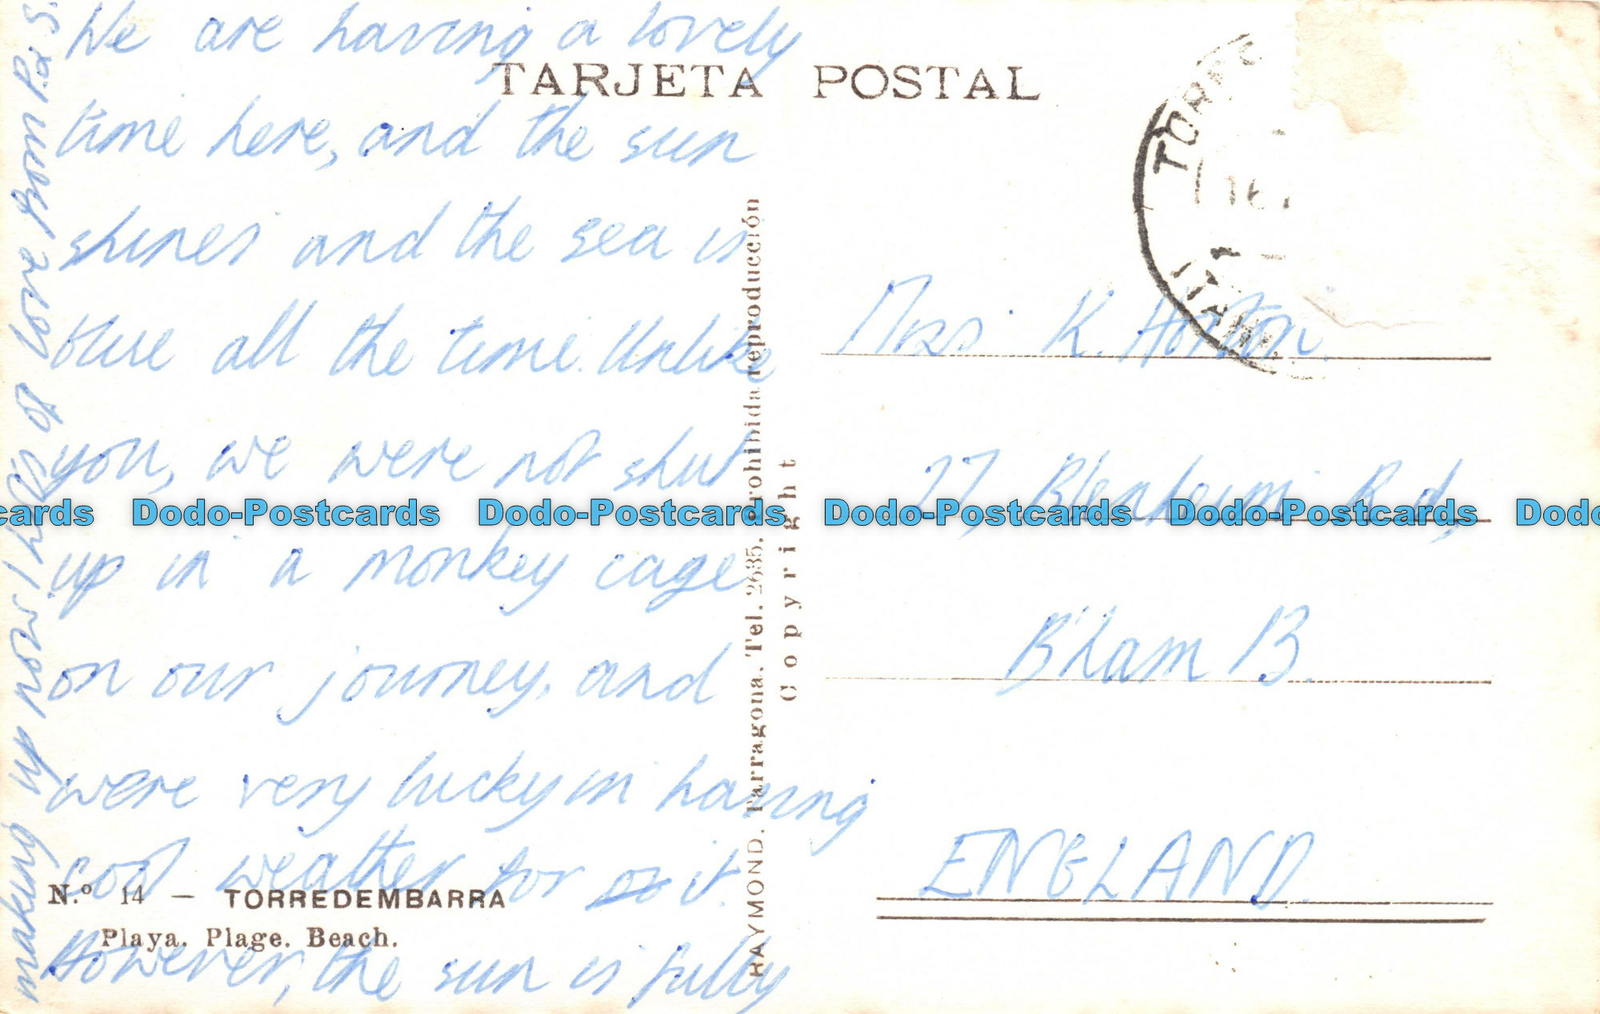 We are having a lovely
time here, and the sun
shines and the sea is
blue all the time. Unlike
you, we were not shut
up in a monkey cage
on our journey, and
were very lucky in having
cool weather for it.
However, the sun is fully
making up now! lots of love from P. & S.
TARJETA POSTAL
N.º 14 — TORREDEMBARRA
Playa. Plage. Beach.
RAYMOND. Tarragona. Tel. 2635. Prohibida reproducción
Copyright
16
Miss K. Horton
27, Blenheim Rd,
B'ham 13.
ENGLAND.
Dodo-Postcards Dodo-Postcards Dodo-Postcards Dodo-Postcards